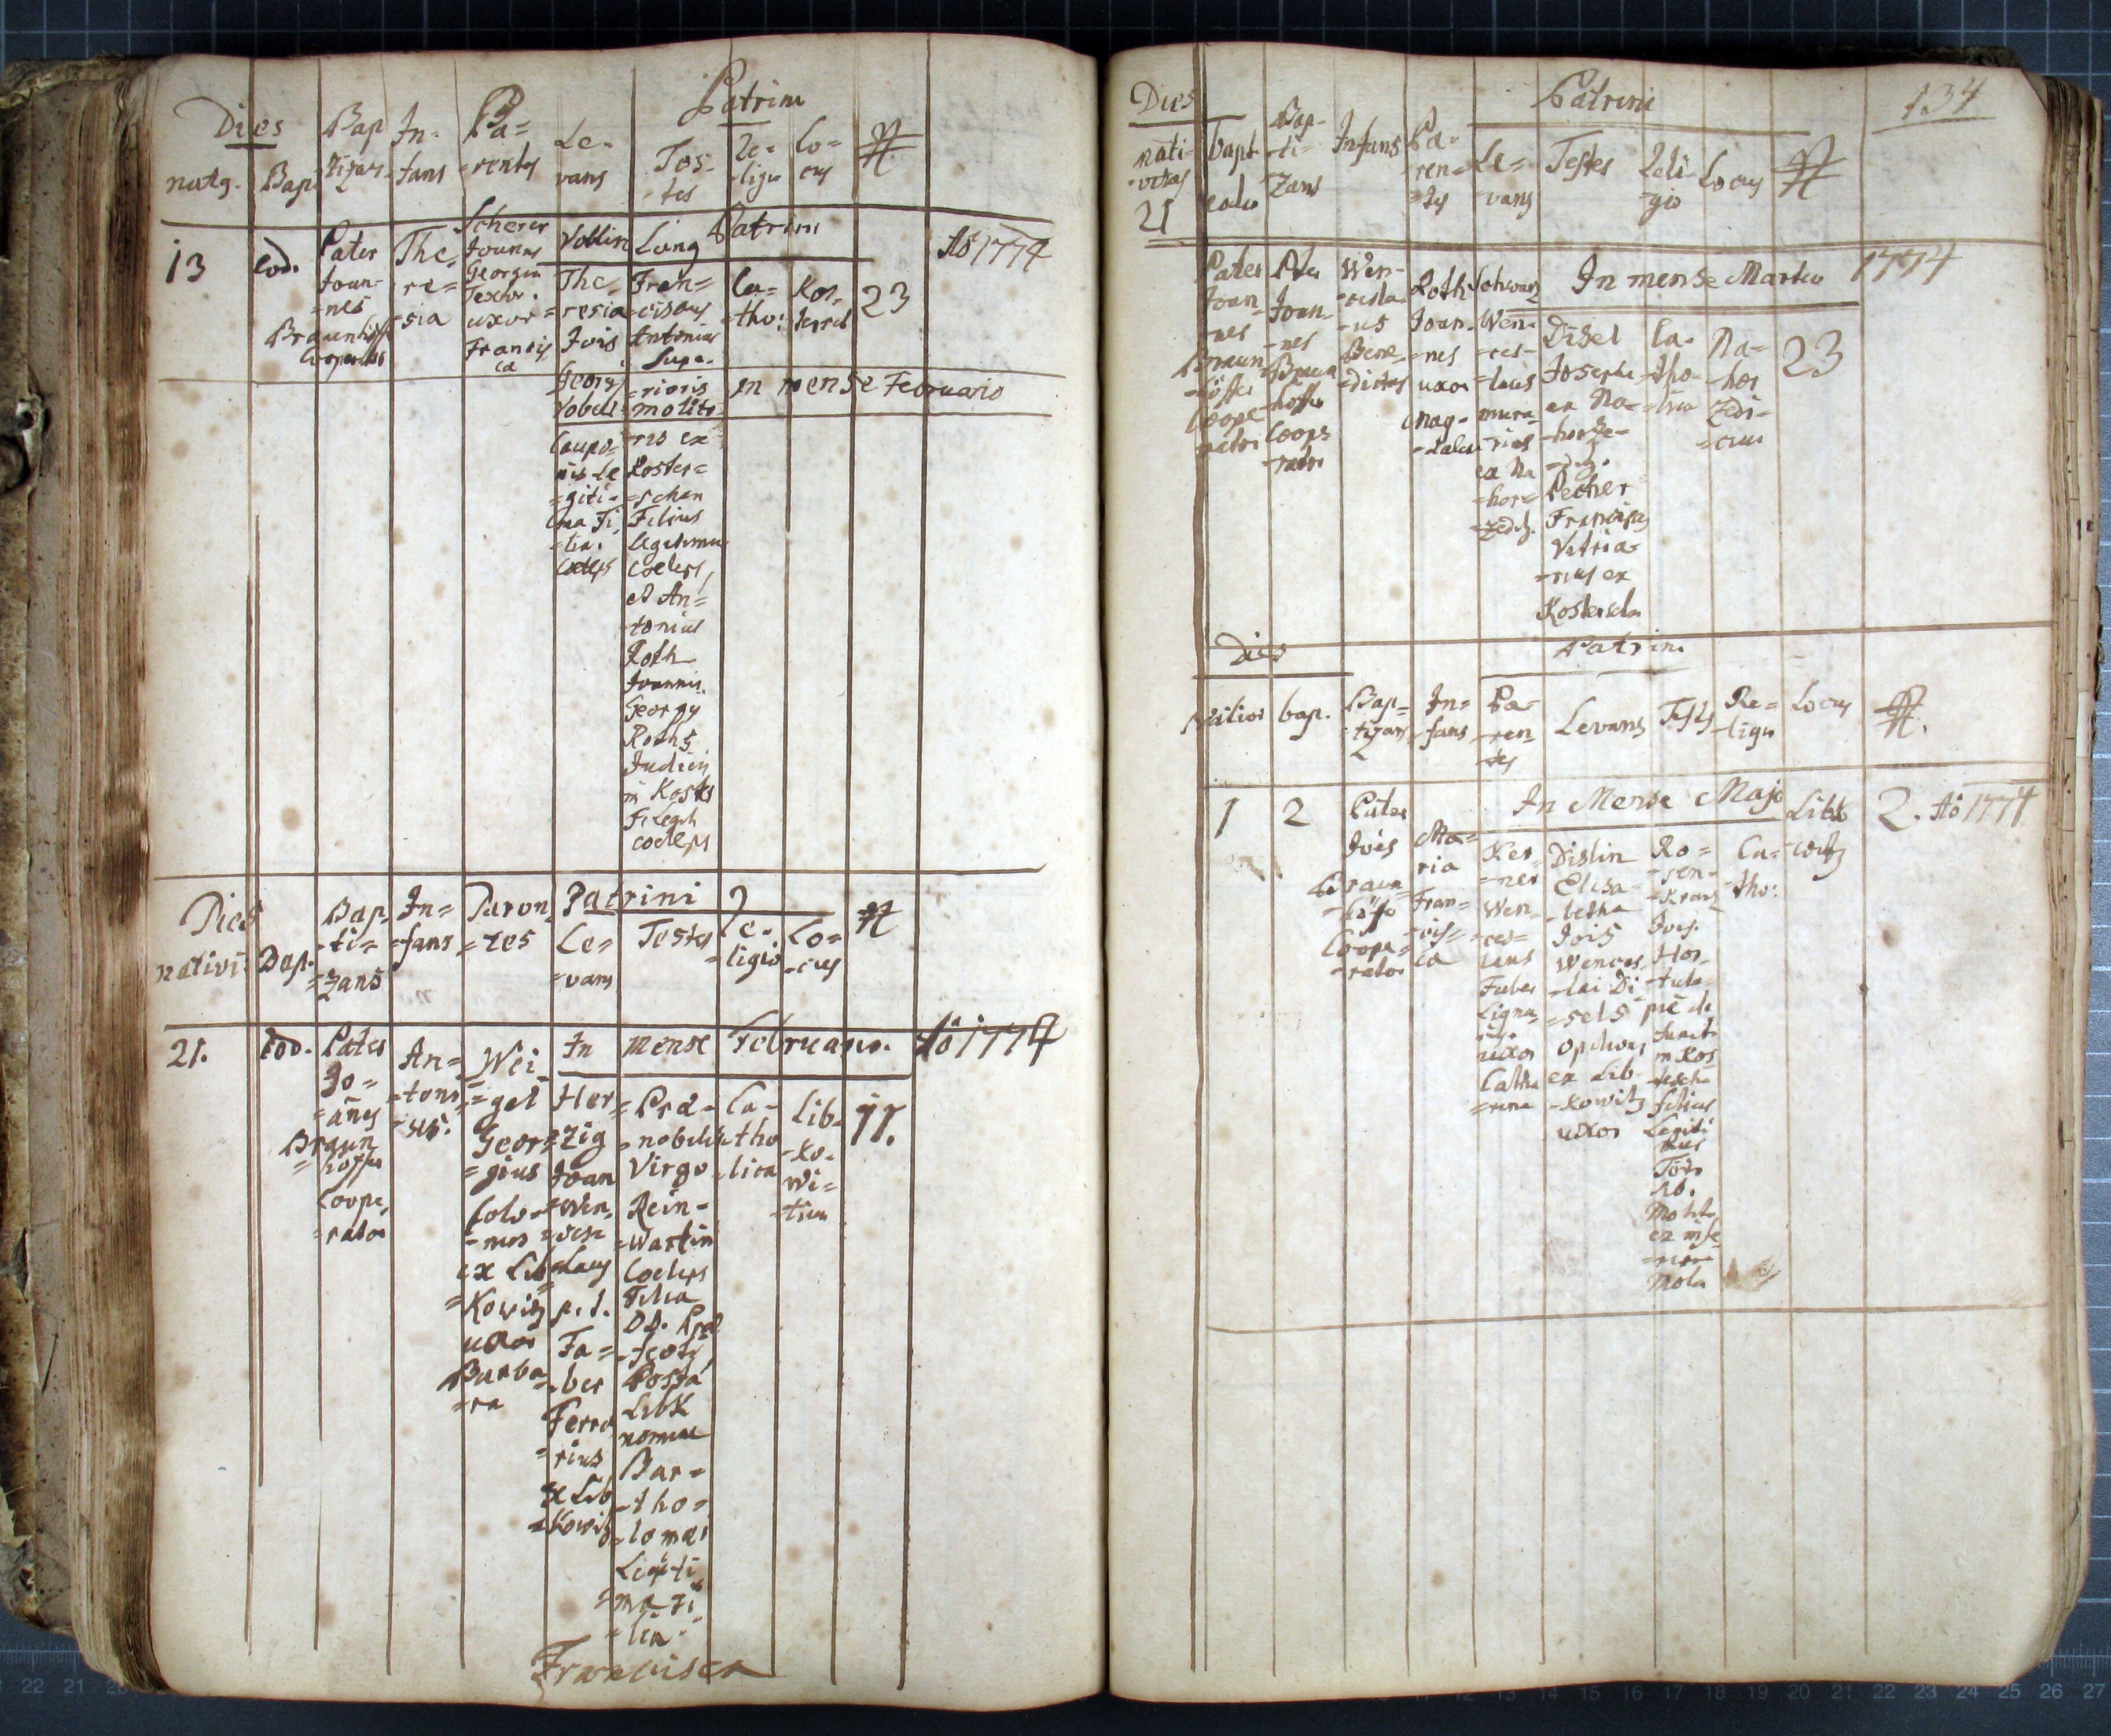 Dies
natg.
Bap.
Bap
tizans
In-
fans
Pa=
=rentes
Patrini
Le-
vans
Tes-
tes
Re-
=ligio
Lo=
cus
N
13
eod.
Pater
Joan-
=nes
Braunhoffer
Cooperator
The,
re=
=sia
Scherer
Joannes
Georgius
Textor.
uxor
Francis
ca
Voblin
The,
=resia
Jois
Georgi
Vobels
Caupo=
nis Le
=giti=
ma Fi
=lia.
Coelebs
Lung
Fran=
=ciscus
Antonius
Supe-
=rioris
molito-
=ris ex
Koster=
=schan
Filius
legitimus
Coelebs,
et An=
tonius
Roth
Joannis
Georgy
Roths
Judicis
in Kosts
Fi Legit
coelebs
Patrini
Ca=
=tho:
Kos,
tersch
23
Aõ 1774
in mense Februario
Dies
nativi:
Bap.
Bap,
=ti=
=zans
In=
=fans
Paren,
=tes
Patrini
Le=
=vans
Testes
Re-
=ligio
Lo=
=cus
N
21.
Eod.
Pater
Jo=
=añes
Braun
=hoffer
Coope,
=rator
An=
=toni
=us.
Wei,
=gel
Geor=
=gius
Colo-
=nus
ex Lib
=Kowitz
uxor
Barba
=ra
In mense Februario. Aõ 1774
Her
=zig
Joan
=Wen,
=ces
=laus
p.t.
Fa=
=ber
Ferra
=rius
ex Lib
=Kowitz
Præ-
=nobilis
Virgo
Rein-
=Wartin
Coelebs
Filia
DD. Præ
=fecti
Posta
Libk
nomine
Bar=
=tho=
=lomæi
Legiti
=ma Fi
=lia.
Francisca
Ca-
=tho
=lica
Lib-
=Ko-
Wi=
=tium
11.
134
Dies
nati-
=vitas
21
bapt.
eodem
Bap-
=ti=
=zans
Infans
Pa-
=ren=
=tes
Patrini
Le=
=vans
Testes
Reli-
=gio
Locus
N
Pater
Joan=
=nes
Braun
=höffer
Coope
=rator
Pater
Joan-
=nes
Braun
=hoffer
Coope
=rator
Wen-
=cesla
=us
Bene-
=dictus
Roth
Joan-
=nes
uxor
Mag-
=dalena
Schwarz
Wen-
=ces-
=laus
mura-
=rius
ex Na
=hor=
=zedz.
In mense Martio 1774
Disel
Joseph
ex Na=
=horze-
=dz.
Pecher
Franciscus
Vitria-
=rius ex
Kosterschan
Ca-
=tho-
=lica
Na-
=hor
zedi-
=cium
23
Dies
Patrini
Nativi
bap.
Bap=
=tizans
In=
=fans
Pa-
=ren
=tes
Levans
Tests
Re=
=ligio
Locus
N.
1
2
Pater
Jois
Braun
=höffer
Coope=
=rator
Ma=
ria
Fran=
=cis=
ca
In Mense Majo
Ker-
=ner
Wen-
=ces=
laus
Faber
Ligna-
=rius
uxor
Catha
=rina
Dislin
Elisa-
=betha
Jois
Wences,
=lai Di
=sels
Opilionis
ex Lib-
=kowitz
uxor
Ro=
=sen-
=Kranz
Jois.
Hor-
=tula-
=nie de
functi
in Kos
tescha
filius
Legiti
mus
Molito
ex infe
=riore
Mola
Ca=
=tho:
Libk
=witz
2. Aõ 1774